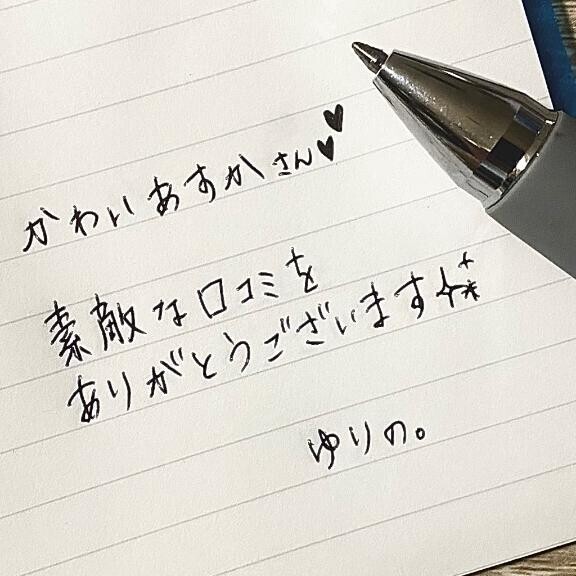 かわいあすかさん♥♥
素敵な口コミを
ありがとうございます✨
ゆりの。